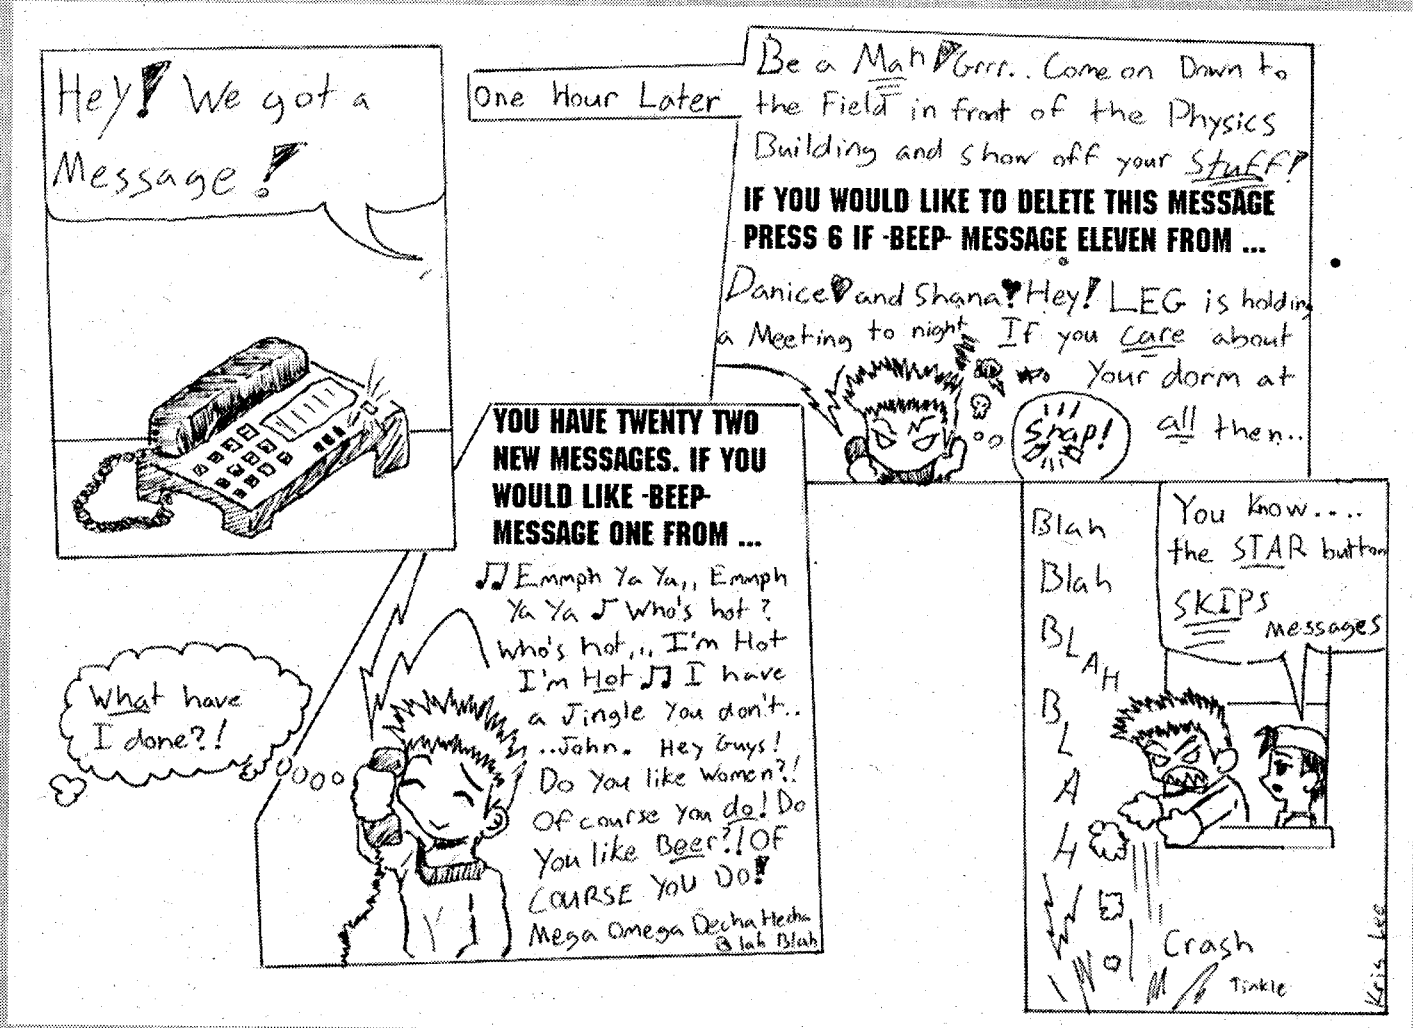 Hey! We got a
Message!
YOU HAVE TWENTY TWO
NEW MESSAGES. IF YOU
WOULD LIKE -BEEP-
MESSAGE ONE FROM ...
♫ Emmph Ya Ya,, Emmph
Ya Ya ♪ Who's hot?
Who's hot,,, I'm Hot
I'm Hot ♫ I have
a Jingle You don't..
..John. Hey Guys!
Do You like Women?!
Of course you do! Do
You like Beer?! OF
COURSE YOU DO!
Mega Omega Decha Hecha
Blah Blah
What have
I done?!
One Hour Later
Be a Man! Grrr.. Come on Down to
the Field in front of the Physics
Building and show off your Stuff!
IF YOU WOULD LIKE TO DELETE THIS MESSAGE
PRESS 6 IF -BEEP- MESSAGE ELEVEN FROM ...
Danice and Shana! Hey! LEG is holding
a Meeting to night If you care about
Your dorm at
all then..
Snap!
Blah
Blah
BLAH
BLAH
You know....
the STAR button
SKIPS
messages
Crash
Tinkle
Kris Lee